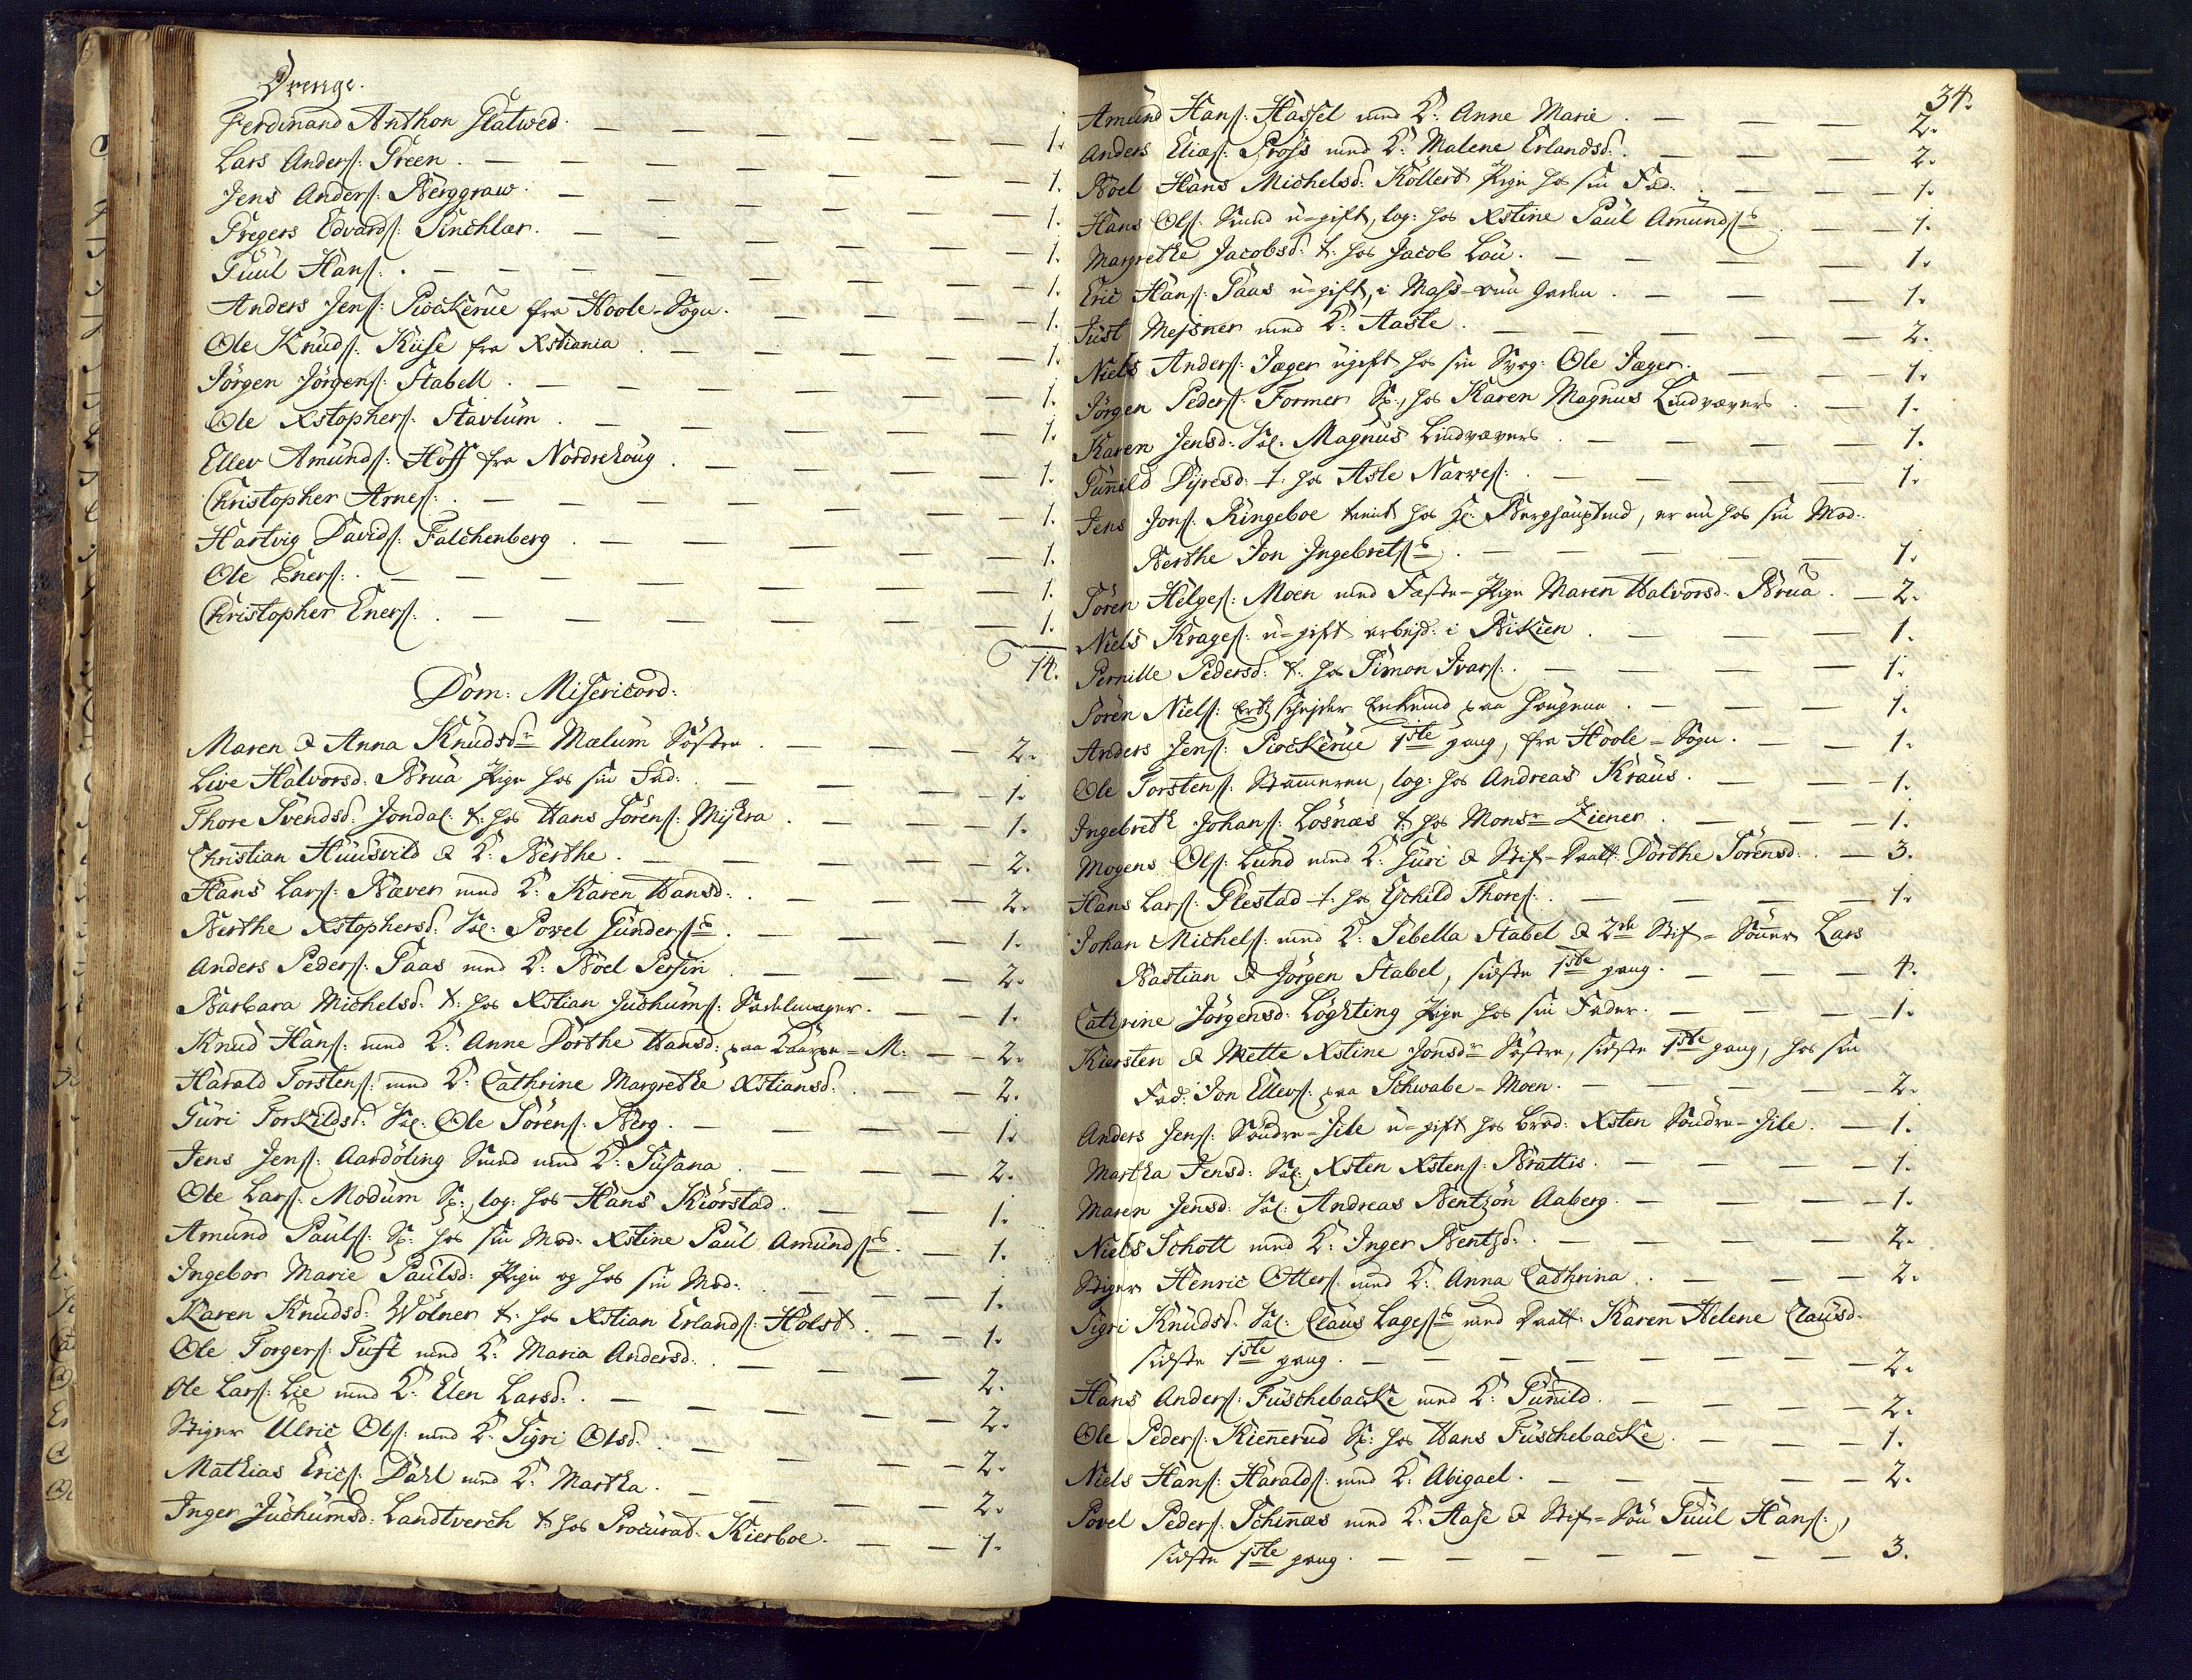 Drenge.
Ferdinand Anthon Flatwed. — 1.
Lars Anders: Green. — 1.
Jens Anders: Berggraw. — 1.
Gregers Edvards: Sinchlar. — 1.
Juul Hans: — 1.
Anders Jens: Piockerüe fra Hoole-Sogn. — 1.
Ole Knuds: Kiise fra Xstiania — 1.
Jörgen Jörgens: Stabell. — 1.
Ole Xstophers: Stavlum. — 1.
Ellev Amünds: Hoff fra Nordrehoug. — 1.
Christopher Arnes: — 1.
Hartvig Davids: Falchenberg. — 1.
Ole Eners: — 1.
Christopher Eners: — 1.
14.
Dom: Misericord:
Maren & Anna Knudsdr Mælum Söstre. — 2.
Live Halvorsd: Brua Pige hos sin Fad: — 1.
Thore Svendsd: Jondal t: hos Hans Sörens: Miskra. — 1.
Christian Huusvild & K: Berthe. — 2.
Hans Lars: Bæver med K: Karen Hansd: — 2.
Berthe Xstophersd: Sal: Povel Gunders — 1.
Anders Peders: Paas med K: Boel Persin — 2.
Barbara Michelsd: t: hos Xstian Juchums: Sadelmager. — 1.
Knud Hans: med K: Anne Dorthe Hansd: paa Kaarpe-M: — 2.
Harald Torstens: med K: Cathrine Margrethe Xstiansd: — 2.
Guri Torkildsd: Sal: Ole Sörens: Berg. — 1.
Jens Jens: Aardöling Smed med K: Susana. — 2.
Ole Lars: Modum S:, log: hos Hans Kiörstad. — 1.
Amund Pauls: S: hos sin Mod: Xstine Paul Amunds — 1.
Ingebor Marie Paulsd: Pige og hos sin Mod: — 1.
Karen Knudsd: Wölner t: hos Xstian Erlands: Holst. — 1.
Ole Torgers: Tuft med K: Maria Andersd: — 2.
Ole Lars: Lie med K: Elen Larsd: — 2.
Stiger Ulric Ols: med K: Sigri Olsd: — 2.
Mathias Erics: Dahl med K: Martha. — 2.
Inger Juchumsd: Landtverch t: hos Procurat: Kierboe. — 1.
34.
Amund Hans: Hassel med K: Anne Marie. — 2.
Anders Elias: Gröss med K: Malene Erlandsd: — 2.
Boel Hans Michelsd: Köllert Pige hos sin Fad: — 1.
Hans Ols: Smed u-gift, log: hos Xstine Paul Amunds — 1.
Margrethe Jacobsd: t: hos Jacob Lau. — 1.
Eric Hans: Paus u-gift, i Mass-vun Gaden. — 1.
Just Mejsner med K: Aaste. — 2.
Niels Anders: Jæger ugift hos sin Svog: Ole Jæger. — 1.
Jörgen Peders: Former S:, hos Karen Magnus Lindvævers. — 1.
Karen Jensd: Sal: Magnus Lindvævers. — 1.
Gunnild Dyresd: t: hos Asle Narves: — 1.
Jens Jons: Ringeboe tient hos Hr: Berghauptmd, er nu hos sin Mod:
Berthe Jon Ingebrets — 1.
Sören Helges: Moen med Fæste-Pige Maren Halvorsd: Brua. — 2.
Niels Krages: u-gift arbejd: i Bikien. — 1.
Pernille Pedersd: t: hos Simon Ivars: — 1.
Sören Niels: Ertz schejder Enkemd paa Haugene. — 1.
Anders Jens: Piockerüe 1ste gang, fra Hoole-Sogn. — 1.
Ole Torstens: Stammeren, log: hos Andreas Kraus. — 1.
Ingebreth Johans: Losnæs t: hos Monsr Ziener. — 1.
Mogens Ols: Lund med K: Guri & Stif-Datt: Dorthe Sörensd: — 3.
Hans Lars: Plestad t: hos Eschild Thores: — 1.
Johan Michels: med K: Sebella Stabel & 2de Stif-Sönner Lars
Bastian & Jörgen Stabel, sidste 1ste gang. — 4.
Cathrine Jörgensd: Löghting Pige hos sin Fader. — 1.
Kiersten & Mette Xstine Jonsdr Söstre, sidste 1ste gang, hos sin
Fad: Jon Ellevs: paa Schwabe-Moen. — 2.
Anders Jens: Söndre-Jile u-gift hos brod: Xsten Söndre-Jile. — 1.
Martha Jensd: Sal: Xsten Xstens: Brattis. — 1.
Maren Jensd: Sal: Andreas Bentzön Aaberg. — 1.
Niels Schott med K: Inger Bentsd: — 2.
Stiger Henric Otters: med K: Anna Cathrina. — 2.
Sigri Knudsd: Sal: Claus Lages med Datt: Karen Helene Clausd:
sidste 1ste gang. — 2.
Hans Anders: Fuschebacke med K: Gunild. — 2.
Ole Peders: Kiennerud S: hos Hans Fuschebacke. — 1.
Niels Hans: Haralds: med K: Abigael. — 2.
Povel Peders: Schinnæs med K: Aase & Stif-Sön Juul Hans:,
sidste 1ste gang. — 3.